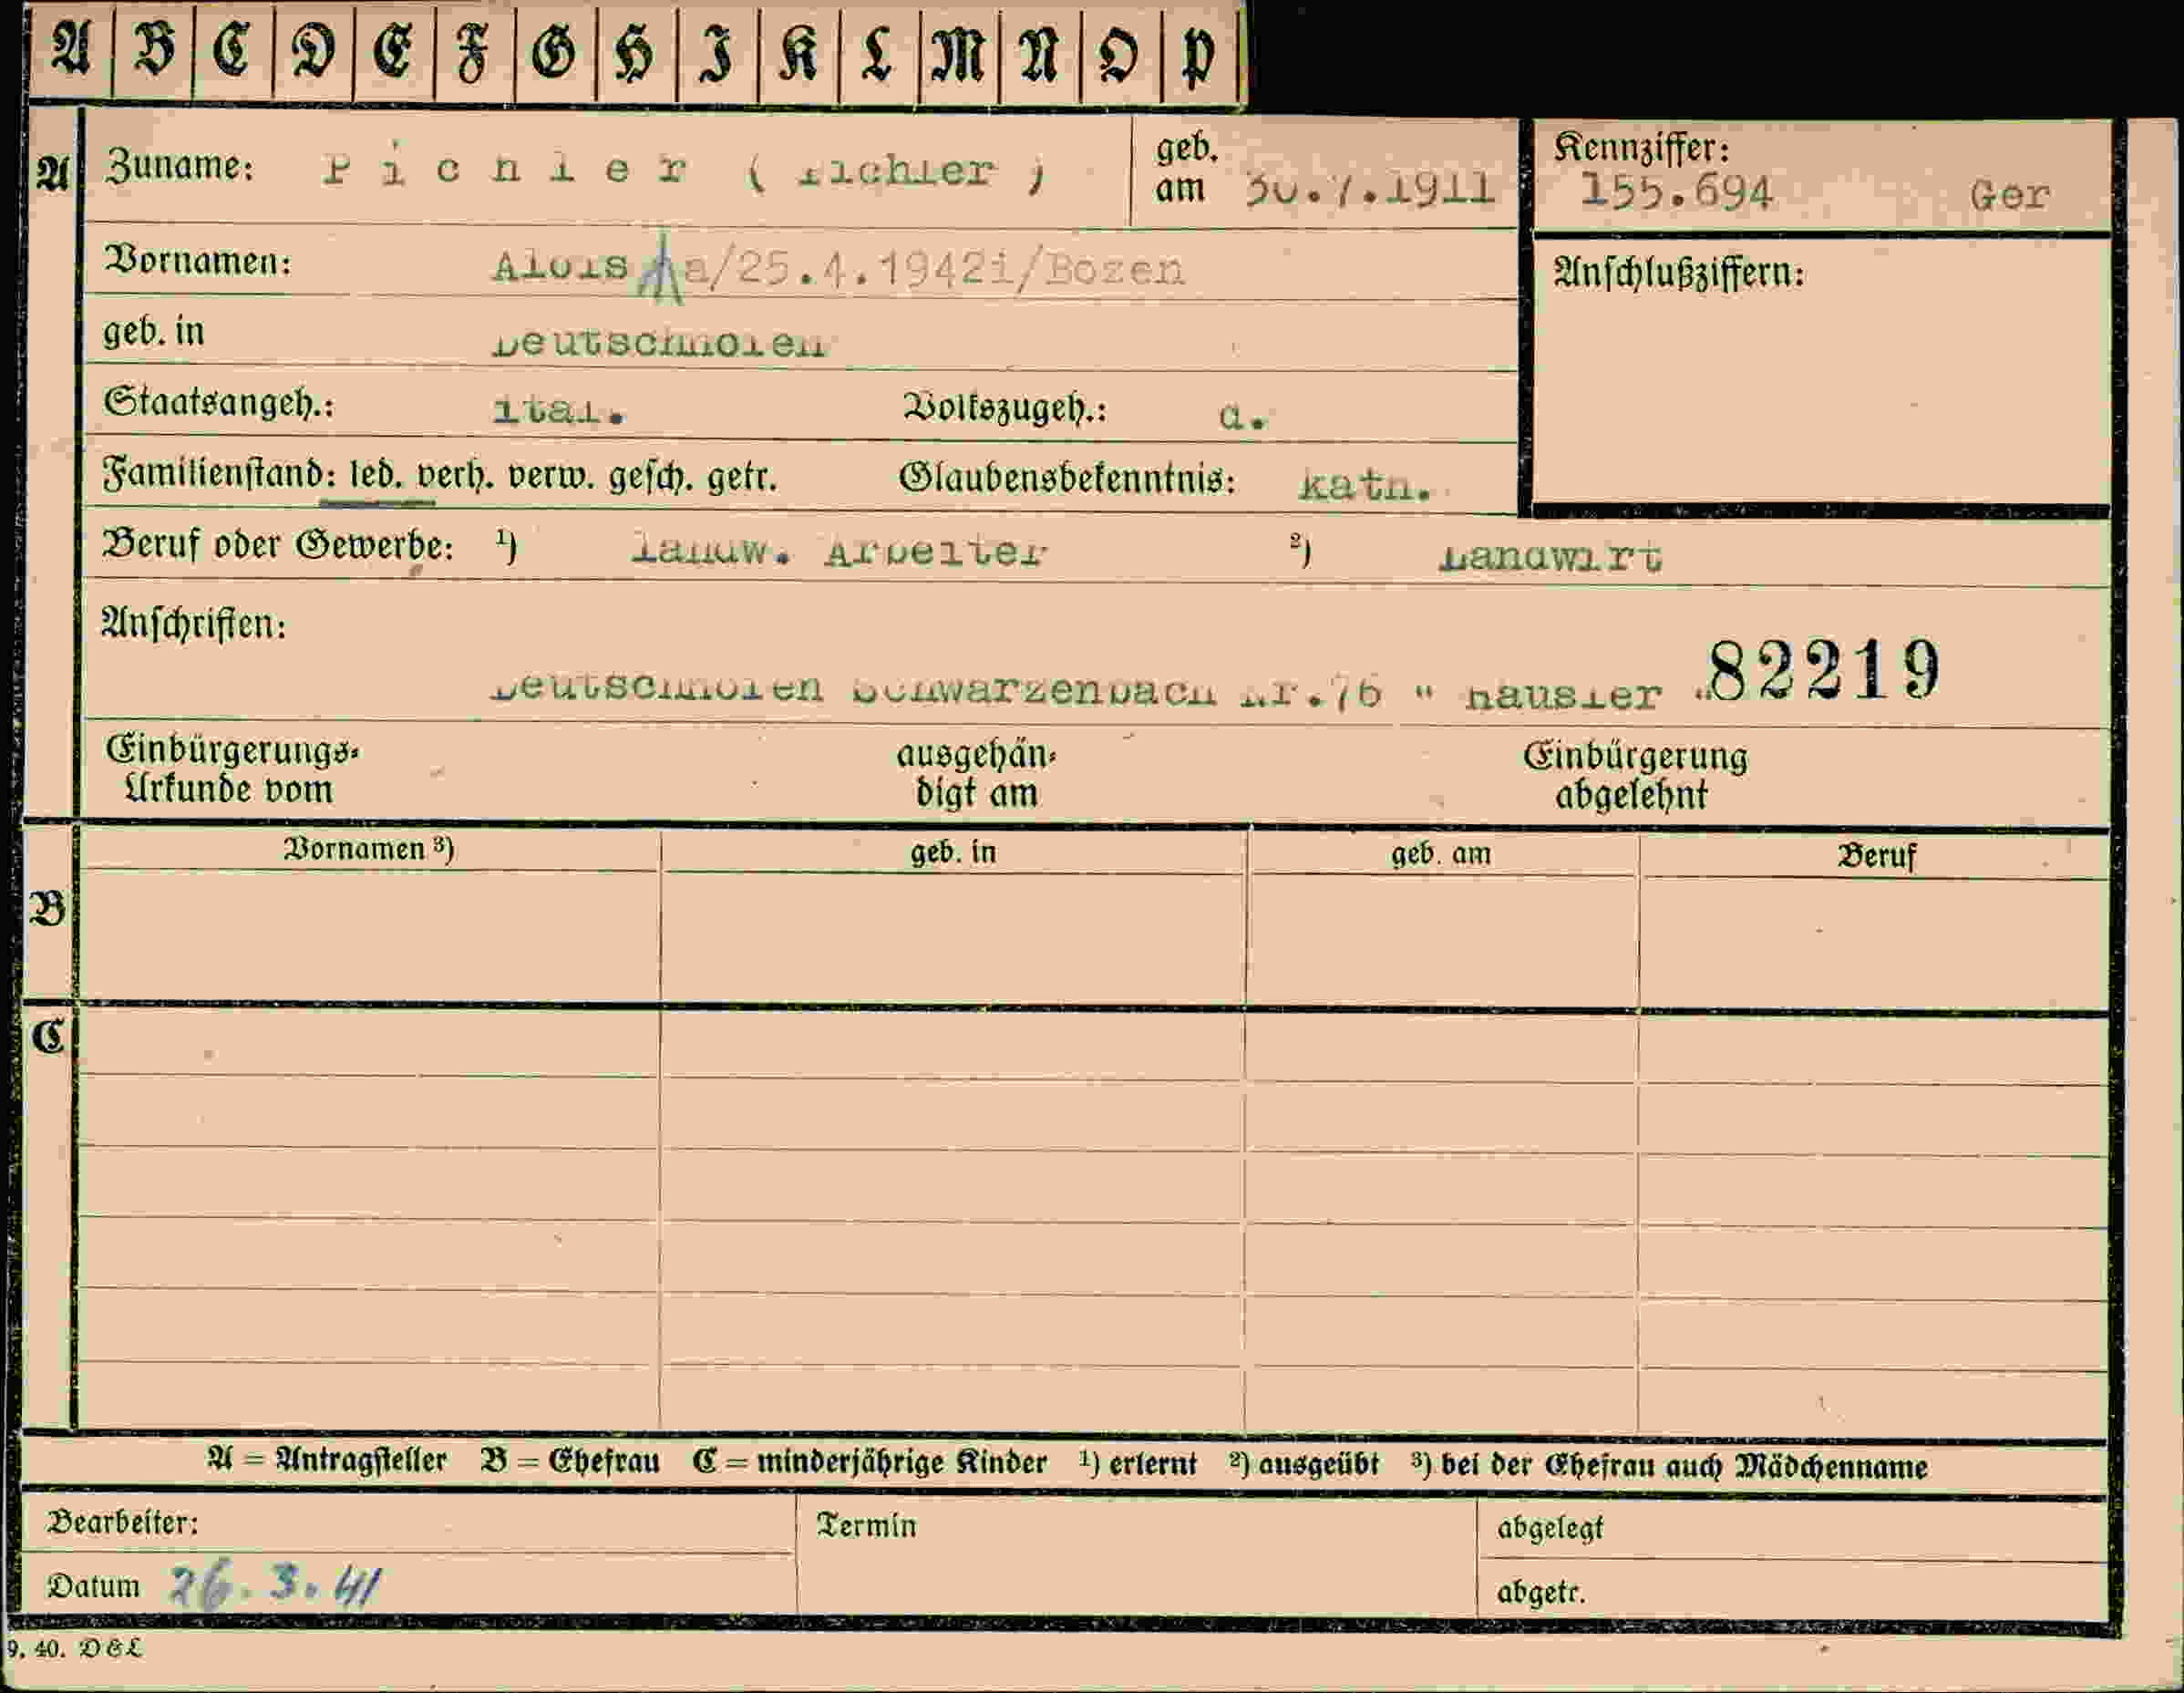 A B C D E F G H I K L M N O P
A Zuname: Pichler ( Pichler ) geb. am 30.7.1911 Kennziffer: 155.694 Ger
Vornamen: Alois a/25.4.1942i/Bozen Anschlußziffern:
geb. in Deutschnofen
Staatsangeh.: ital. Volkszugeh.: d.
Familienstand: led. verh. verw. gesch. getr. Glaubensbekenntnis: kath.
Beruf oder Gewerbe: ¹) landw. Arbeiter ²) Landwirt
Anschriften:
Deutschnofen Schwarzenbach Nr.76 " Häusler " 82219
Einbürgerungs- ausgehän- Einbürgerung
Urkunde vom digt am abgelehnt
Vornamen ³) geb. in geb. am Beruf
B
C
A = Antragsteller B = Ehefrau C = minderjährige Kinder ¹) erlernt ²) ausgeübt ³) bei der Ehefrau auch Mädchenname
Bearbeiter: Termin abgelegt
Datum 26.3.41 abgetr.
9. 40. D&L